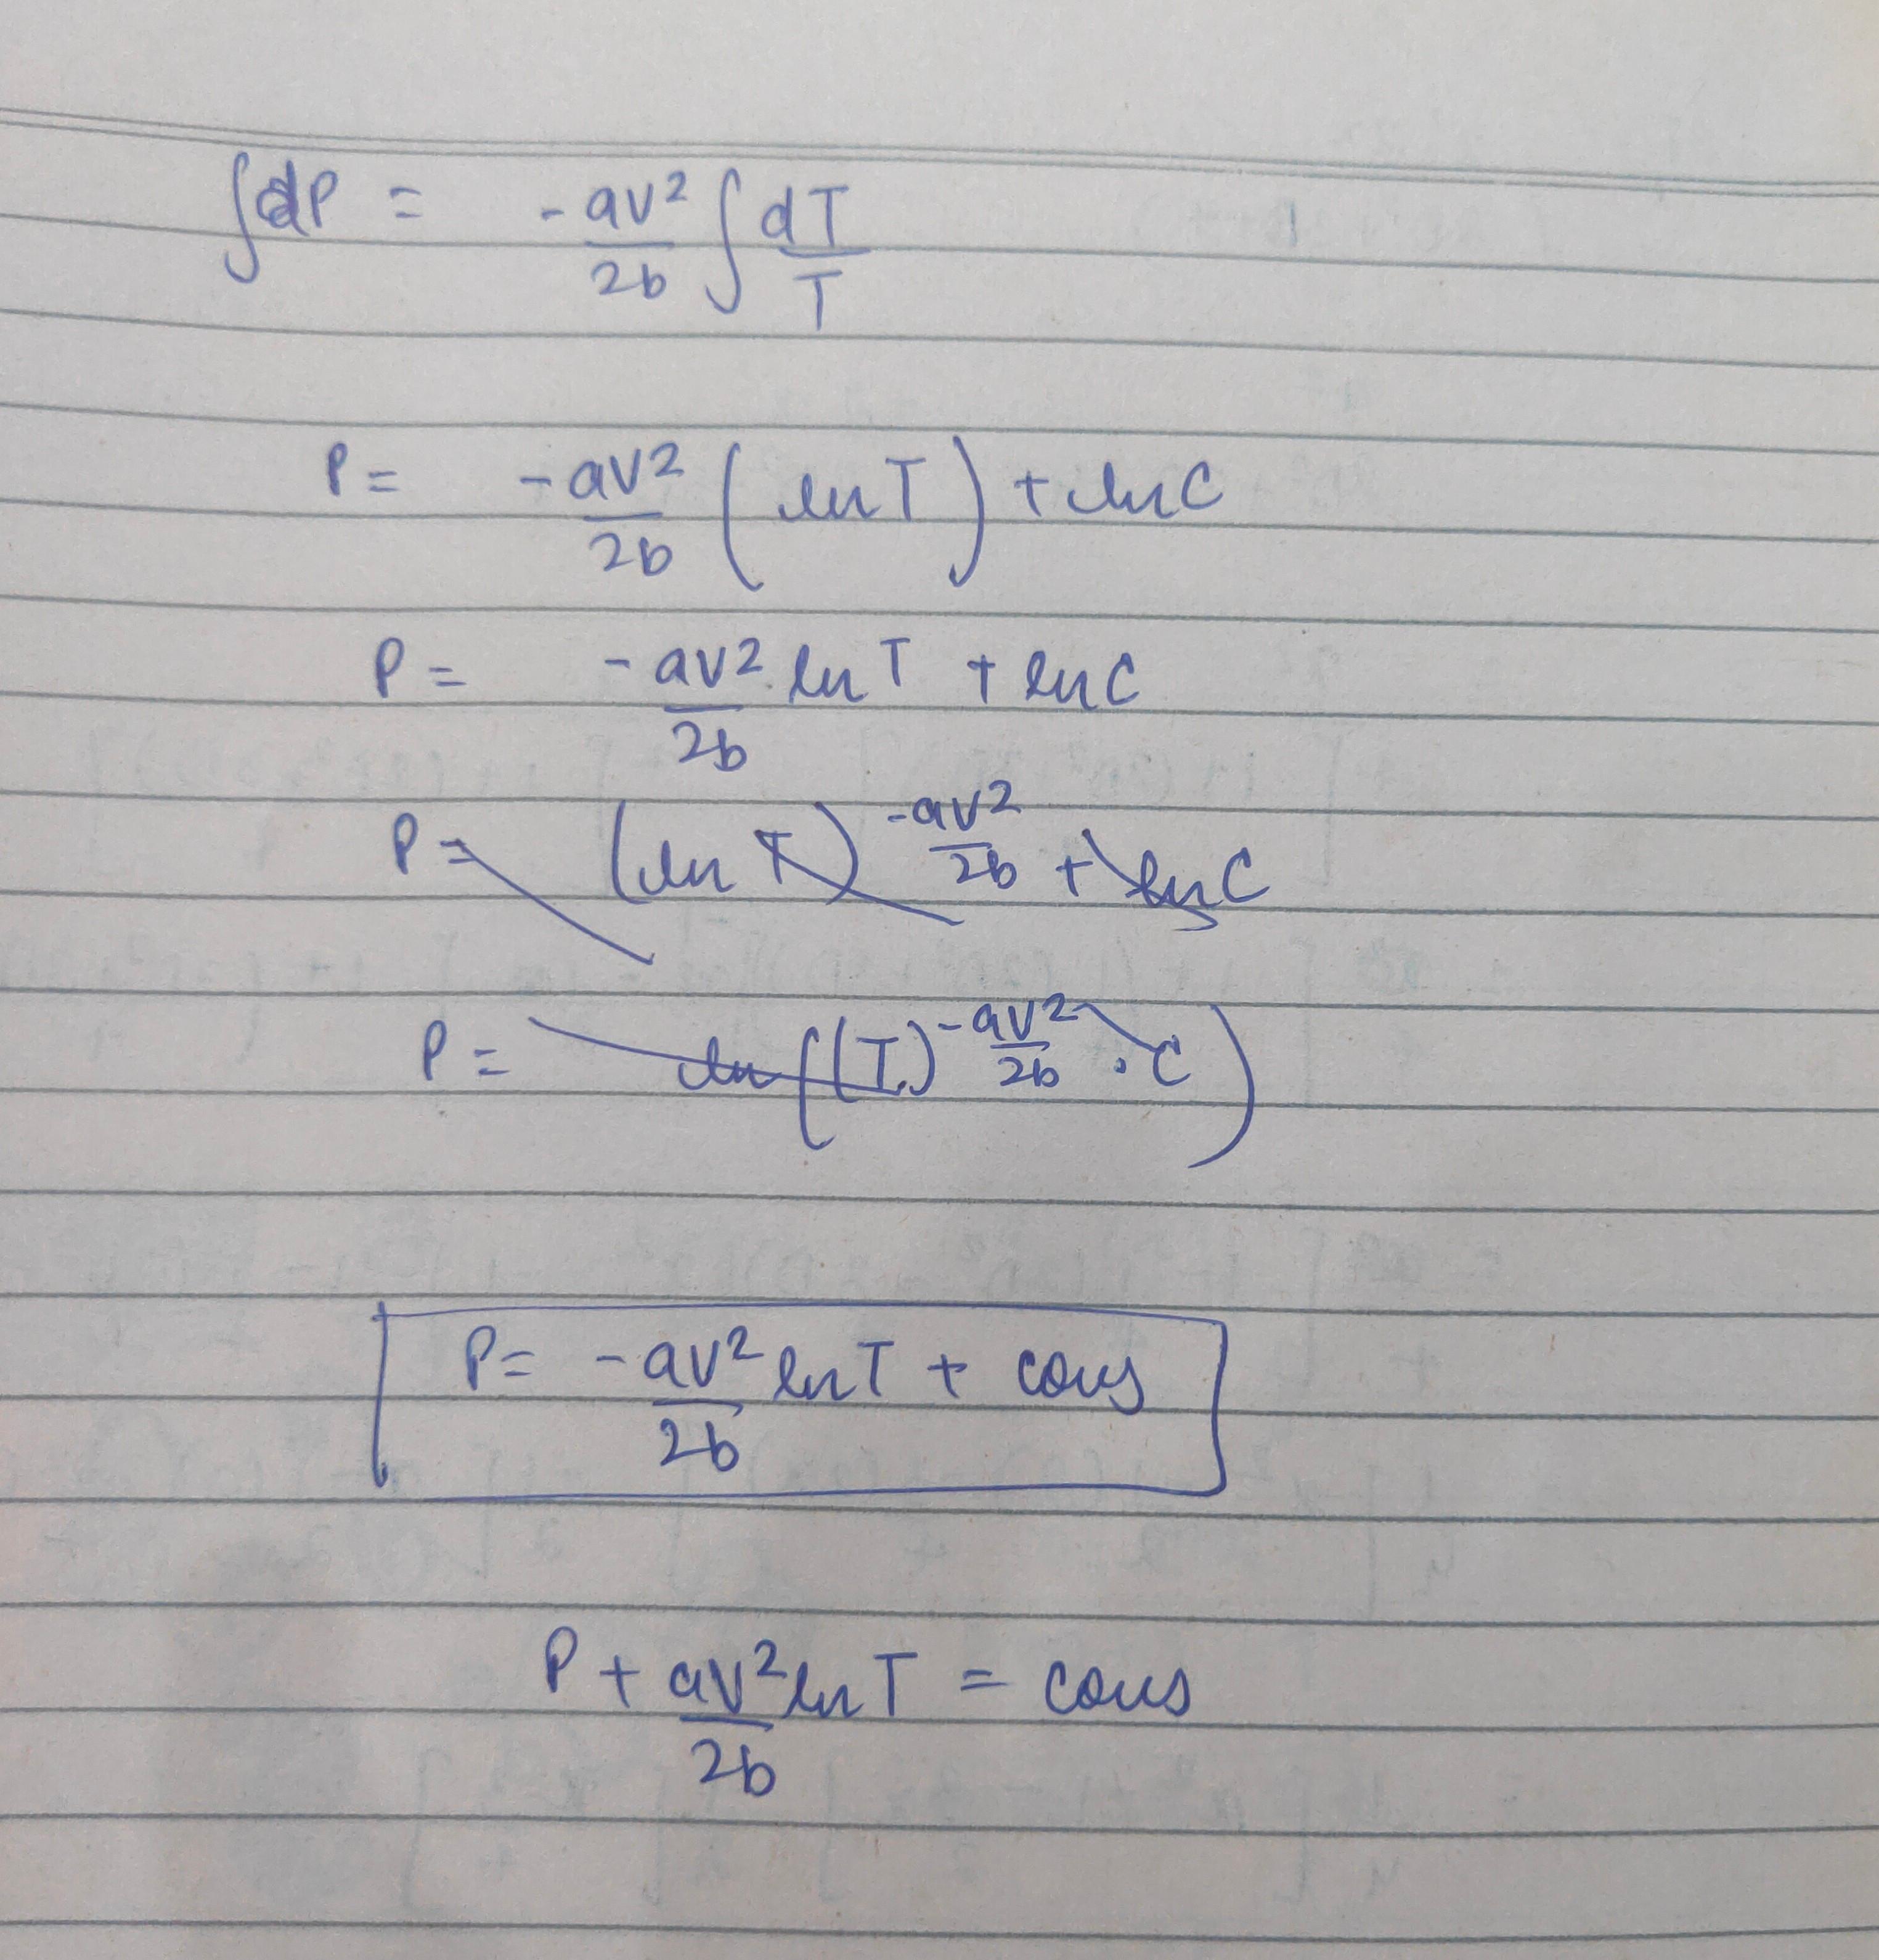 ∫dP = -av²/2b ∫dT/T
P = -av²/2b (ln T) + ln C
P = -av²/2b ln T + ln C
P = (ln T)^(-av²/2b) + ln C
P = ln((T)^(-av²/2b) · C)
P = -av²/2b ln T + cons
P + av²/2b ln T = cons